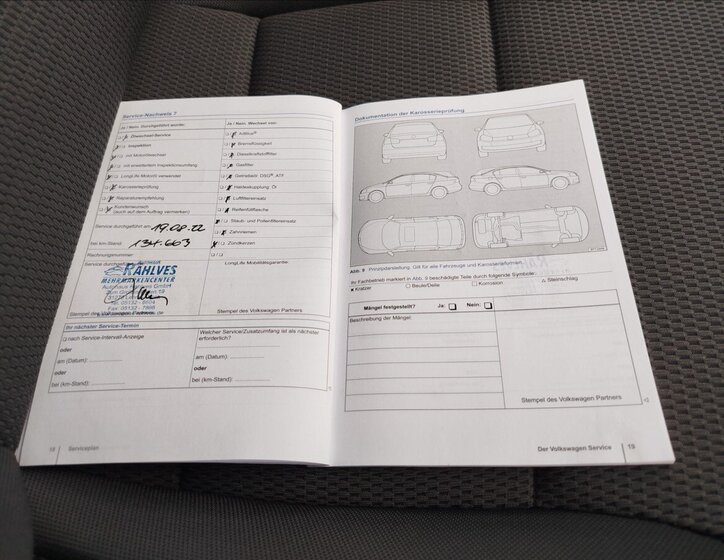 Service-Nachweis 7
Ja / Nein Durchgeführt wurde:
Ölwechsel-Service
Inspektion
mit Motorölwechsel
mit erweitertem Inspektionsumfang
LongLife Motoröl verwendet
Karosserieprüfung
Reparaturempfehlung
Kundenwunsch
(auch auf dem Auftrag vermerken)
Service durchgeführt am: 19.08.22
bei km-Stand: 134.663
Rechnungsnummer:
Service durchgeführt
KAHLVES
MEHRMARKENCENTER
Autohaus Kahlves GmbH
Stempel des Volkswagen Partners
Ja / Nein Wechsel von:
AdBlue®
Bremsflüssigkeit
Dieselkraftstofffilter
Gasfilter
Getriebeöl: DSG®, ATF
Haldexkupplung: Öl
Luftfiltereinsatz
Reifenfüllflasche
Staub- und Pollenfiltereinsatz
Zahnriemen
Zündkerzen
LongLife Mobilitätsgarantie:
Stempel des Volkswagen Partners
Ihr nächster Service-Termin
nach Service-Intervall-Anzeige
oder
am (Datum):
oder
bei (km-Stand):
Welcher Service/Zusatzumfang ist als nächster
erforderlich?
am (Datum):
oder
bei (km-Stand):
18 Serviceplan
Dokumentation der Karosserieprüfung
Abb. 9 Prinzipdarstellung: Gilt für alle Fahrzeuge und Karosserieformen.
Ihr Fachbetrieb markiert in Abb. 9 beschädigte Teile durch folgende Symbole:
× Kratzer ○ Beule/Delle □ Korrosion △ Steinschlag
Mängel festgestellt? Ja: Nein:
Beschreibung der Mängel:
Stempel des Volkswagen Partners
Der Volkswagen Service 19